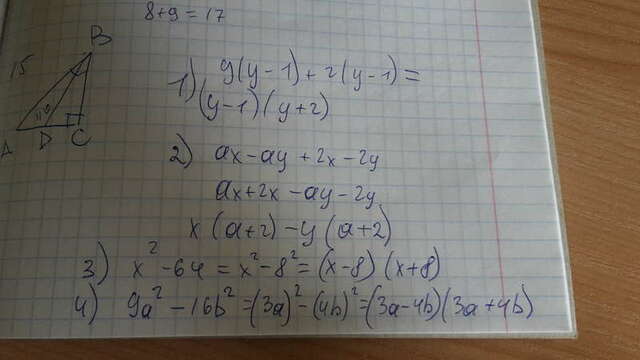 8+9=17
B
15
A D C
1) y(y-1)+2(y-1)=
(y-1)(y+2)
2) ax-ay+2x-2y
ax+2x-ay-2y
x(a+2)-y(a+2)
3) x²-64=x²-8²=(x-8)(x+8)
4) 9a²-16b²=(3a)²-(4b)²=(3a-4b)(3a+4b)